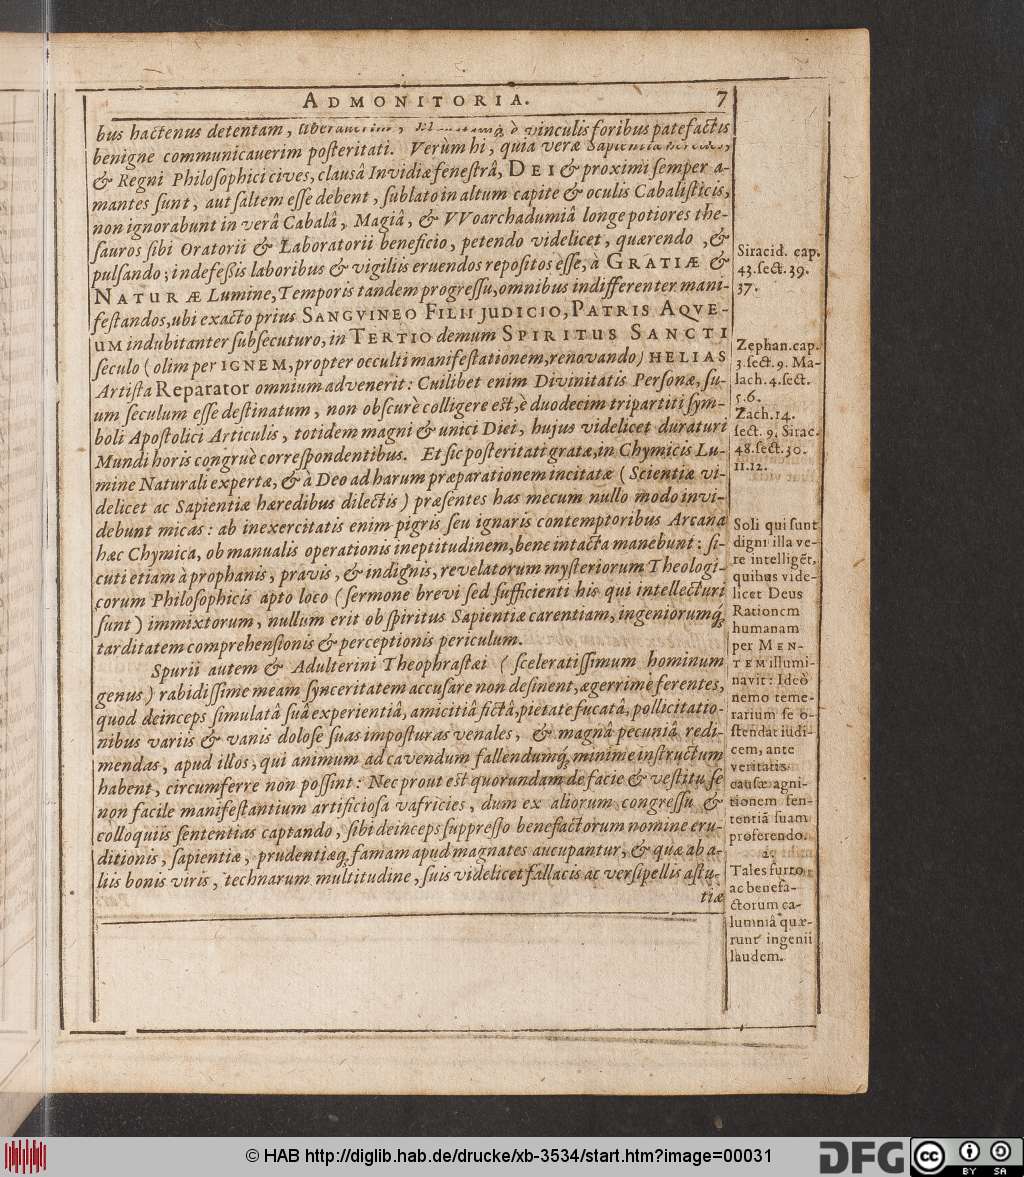 ADMONITORIA. 7
bus hactenus detentam, è vinculis foribus patefactis
benigne communicaverim posteritati. Verùm hi, quia veræ Sapientiæ hæredes,
& Regni Philosophici cives, clausâ Invidiæ fenestrâ, DEI & proximi semper a-
mantes sunt, aut saltem esse debent, sublato in altum capite & oculis Cabalisticis,
non ignorabunt in verâ Cabalâ, Magiâ, & VVoarchadumiâ longe potiores the-
sauros sibi Oratorii & Laboratorii beneficio, petendo videlicet, quærendo, &
pulsando; indefeßis laboribus & vigiliis eruendos repositos esse, à GRATIÆ &
NATURÆ Lumine, Temporis tandem progressu, omnibus indifferenter mani-
festandos, ubi exacto prius SANGVINEO FILII JUDICIO, PATRIS AQVE-
UM indubitanter subsecuturo, in TERTIO demum SPIRITUS SANCTI
seculo (olim per IGNEM, propter occulti manifestationem, renovando) HELIAS
Artista Reparator omnium advenerit: Cuilibet enim Divinitatis Personæ, su-
um seculum esse destinatum, non obscurè colligere est, è duodecim tripartiti sym-
boli Apostolici Articulis, totidem magni & unici Diei, hujus videlicet duraturi
Mundi horis congruè correspondentibus. Et sic posteritati gratæ, in Chymicis Lu-
mine Naturali expertæ, & à Deo ad harum præparationem incitatæ (Scientiæ vi-
delicet ac Sapientiæ hæredibus dilectis) præsentes has mecum nullo modo invi-
debunt micas: ab inexercitatis enim pigris seu ignaris contemptoribus Arcana
hæc Chymica, ob manualis operationis ineptitudinem, bene intacta manebunt: si-
cuti etiam à prophanis, pravis, & indignis, revelatorum mysteriorum Theologi-
corum Philosophicis apto loco (sermone brevi sed sufficienti his qui intellecturi
sunt) immixtorum, nullum erit ob spiritus Sapientiæ carentiam, ingeniorumq́;
tarditatem comprehensionis & perceptionis periculum.
Spurii autem & Adulterini Theophrastæi (sceleratissimum hominum
genus) rabidissime meam synceritatem accusare non desinent, ægerrime ferentes,
quod deinceps simulatâ suâ experientiâ, amicitiâ fictâ, pietate fucatâ, pollicitatio-
nibus variis & vanis dolose suas imposturas venales, & magnâ pecuniâ redi-
mendas, apud illos, qui animum ad cavendum fallendumq́; minime instructum
habent, circumferre non possint: Nec prout est quorundam de facie & vestitu se
non facile manifestantium artificiosa vafricies, dum ex aliorum congressu &
colloquiis sententias captando, sibi deinceps suppresso benefactorum nomine eru-
ditionis, sapientiæ, prudentiæq́; famam apud magnates aucupantur, & quæ ab a-
liis bonis viris, technarum multitudine, suis videlicet fallacis ac versipellis astu-
tiæ
Siracid. cap.
43. sect. 39.
37.
Zephan. cap.
3. sect. 9. Ma-
lach. 4. sect.
5. 6.
Zach. 14.
sect. 9. Sirac.
48. sect. 30.
11. 12.
Soli qui sunt
digni illa ve-
re intelligēt,
quibus vide-
licet Deus
Rationem
humanam
per MEN-
TEM illumi-
navit: Ideò
nemo teme-
rarium se o-
stendat iudi-
cem, ante
veritatis
causæ agni-
tionem sen-
tentiā suam
proferendo.
2.
Tales furto
ac benefa-
ctorum ca-
lumniâ quæ-
runt ingenii
laudem.
© HAB http://diglib.hab.de/drucke/xb-3534/start.htm?image=00031
DFG
cc
BY SA